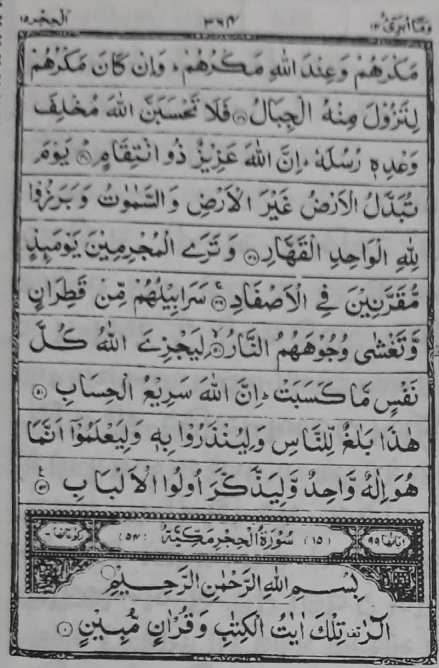 وما ابرئ ١٣ ٣٦٤ الحجر ١٥
مَكْرَهُمْ وَعِنْدَ اللهِ مَكْرُهُمْ ؕ وَاِنْ كَانَ مَكْرُهُمْ
لِتَزُوْلَ مِنْهُ الْجِبَالُ ﴿۴۶﴾ فَلَا تَحْسَبَنَّ اللهَ مُخْلِفَ
وَعْدِهٖ رُسُلَهٗ ؕ اِنَّ اللهَ عَزِيْزٌ ذُو انْتِقَامٍ ﴿۴۷﴾ يَوْمَ
تُبَدَّلُ الْاَرْضُ غَيْرَ الْاَرْضِ وَالسَّمٰوٰتُ وَبَرَزُوْا
لِلّٰهِ الْوَاحِدِ الْقَهَّارِ ﴿۴۸﴾ وَتَرَى الْمُجْرِمِيْنَ يَوْمَىِٕذٍ
مُّقَرَّنِيْنَ فِي الْاَصْفَادِ ﴿۴۹﴾ سَرَابِيْلُهُمْ مِّنْ قَطِرَانٍ
وَّتَغْشٰى وُجُوْهَهُمُ النَّارُ ﴿۵۰﴾ لِيَجْزِيَ اللهُ كُلَّ
نَفْسٍ مَّا كَسَبَتْ ؕ اِنَّ اللهَ سَرِيْعُ الْحِسَابِ ﴿۵۱﴾
هٰذَا بَلٰغٌ لِّلنَّاسِ وَلِيُنْذَرُوْا بِهٖ وَلِيَعْلَمُوْٓا اَنَّمَا
هُوَ اِلٰهٌ وَّاحِدٌ وَّلِيَذَّكَّرَ اُولُوا الْاَلْبَابِ ﴿۵۲﴾
اٰيَاتُهَا ٩٩ (١٥) سُوْرَةُ الْحِجْرِ مَكِّيَّةٌ (٥٤) رُكُوْعَاتُهَا ٦
بِسْمِ اللهِ الرَّحْمٰنِ الرَّحِيْمِ
الٓرٰ ۫ تِلْكَ اٰيٰتُ الْكِتٰبِ وَقُرْاٰنٍ مُّبِيْنٍ ﴿۱﴾